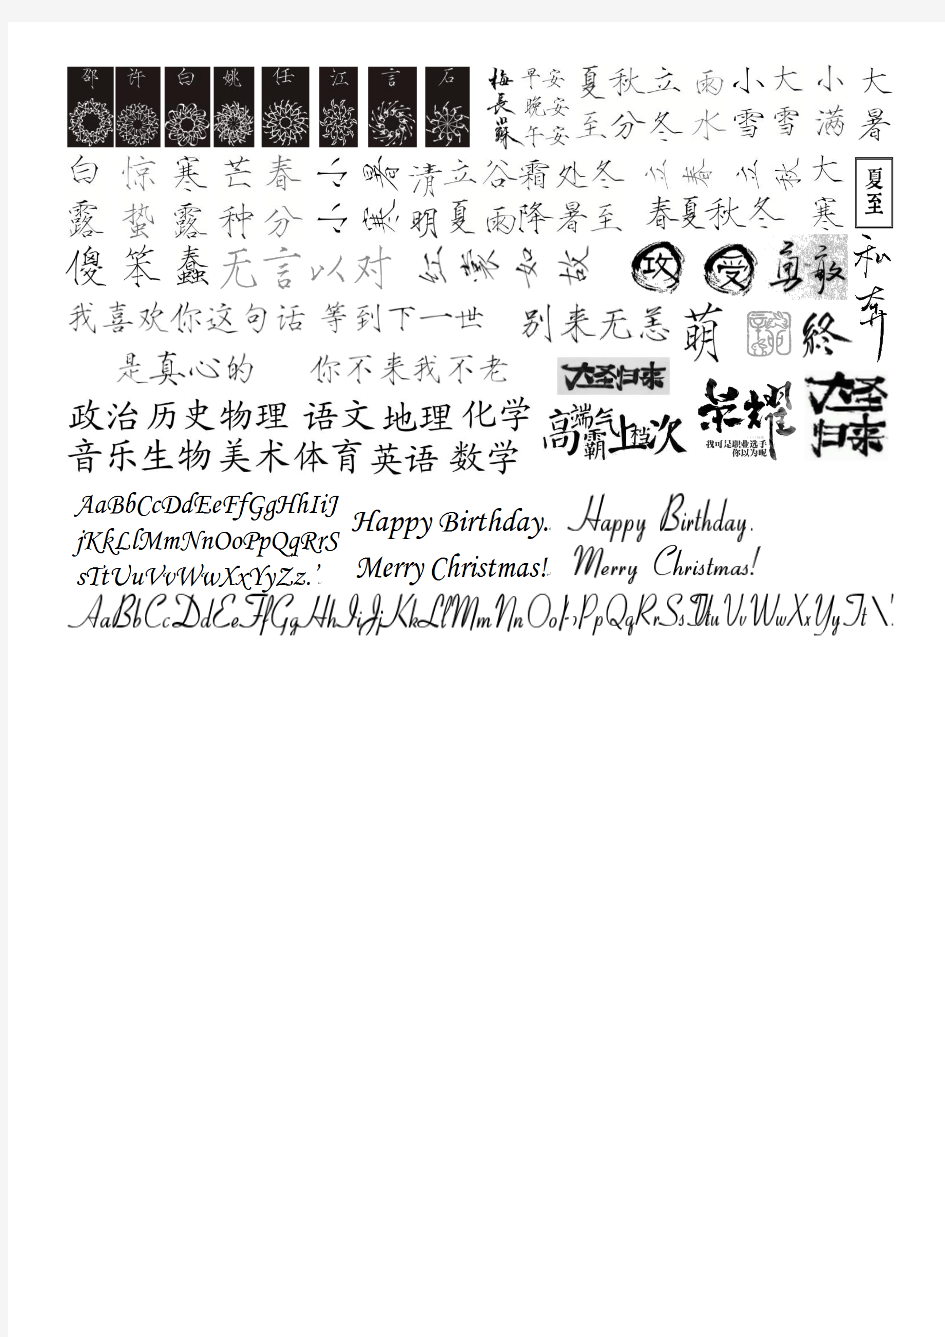 邵 许 白 姚 任 江 言 石
梅長蘇
早安
晚安
午安
夏至 秋分 立冬 雨水 小雪 大雪 小满 大暑
白露 惊蛰 寒露 芒种 春分 小暑 小寒 清明 立夏 谷雨 霜降 处暑 冬至 立春 立秋 大寒 夏至
春夏秋冬
傻 笨 蠢 无言以对 红裳如故 攻 受 勇敢 私奔
我喜欢你这句话 等到下一世 别来无恙 萌 終
是真心的 你不来我不老
大圣归来
高端霸气上档次
荣耀
我可是职业选手
你以为呢
大圣
归来
政治 历史 物理 语文 地理 化学
音乐 生物 美术 体育 英语 数学
AaBbCcDdEeFfGgHhIiJ
jKkLlMmNnOoPpQqRrS
sTtUuVvWwXxYyZz.'
Happy Birthday.
Merry Christmas!
Happy Birthday.
Merry Christmas!
AaBbCcDdEeFfGgHhIiJjKkLlMmNnOoPpQqRrSsTtUuVvWwXxYy